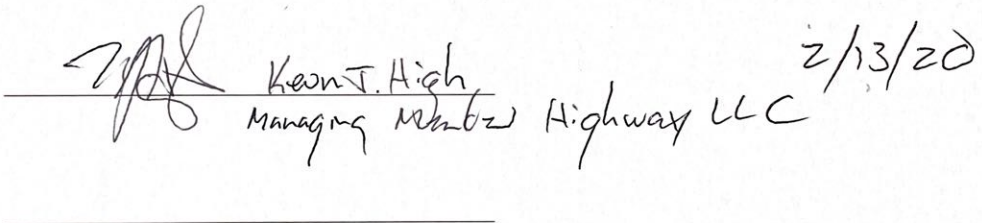 Keon J. High 2/13/20
Managing Member Highway LLC